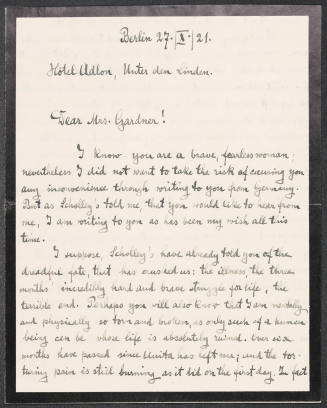 Berlin 27. X. 21.
Hôtel Adlon, Unter den Linden.
Dear Mrs. Gardner!
I know you are a brave, fearless woman;
nevertheless I did not want to take the risk of causing you
any inconvenience through writing to you from Germany.
But as Scholley's told me, that you would like to hear from
me, I am writing to you as has been my wish all this
time.
I suppose, Scholley's have already told you of the
dreadful fate, that has crushed us: the illness, the three
months' incredibly hard and brave struggle for life, the
terrible end. Perhaps you will also know that I am mentally
and physically so torn and broken, as only such of a human
being can be whose life is absolutely ruined. Over six
months have passed since Anita has left me; and the tor-
turing pain is still burning as it did on the first day. In fact